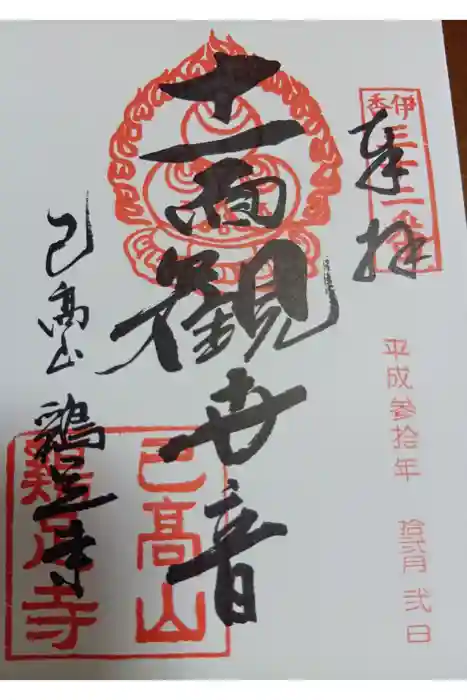 奉拝
伊香三十三番
平成参拾年 拾弐月弐日
十一面観世音
己高山 鶏足寺
己高山
鶏足寺